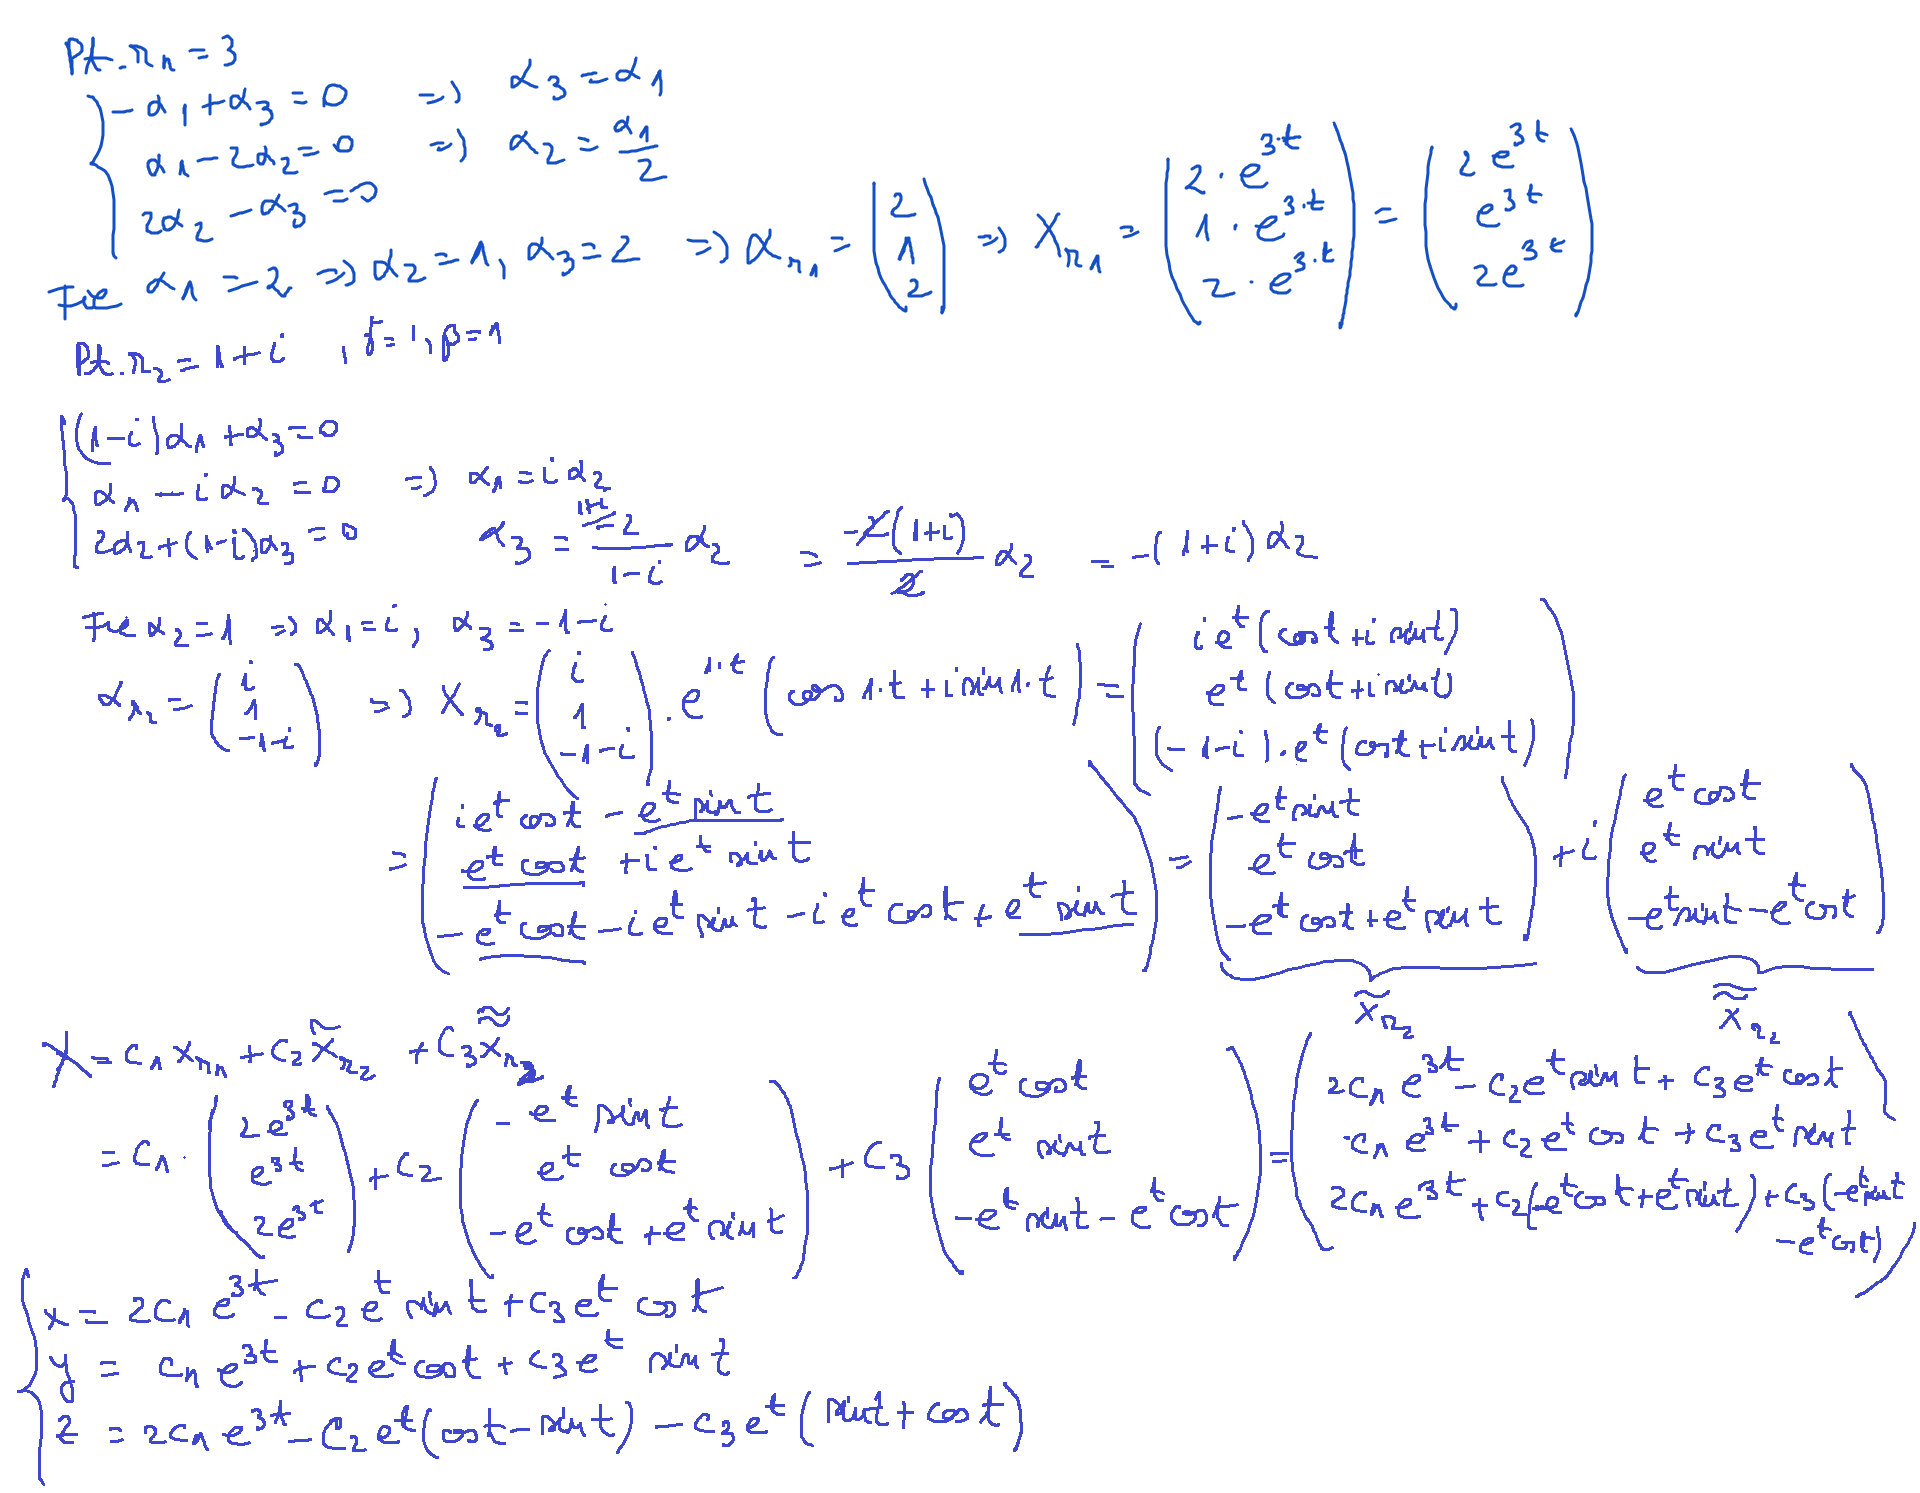 Pt. r₁ = 3
{ -α₁ + α₃ = 0 => α₃ = α₁
α₁ - 2α₂ = 0 => α₂ = α₁/2
2α₂ - α₃ = 0
Fie α₁ = 2 => α₂ = 1, α₃ = 2 => α_r₁ = (2 1 2) => X_r₁ = (2·e^3·t 1·e^3·t 2·e^3·t) = (2e^3t e^3t 2e^3t)
Pt. r₂ = 1+i , γ=1, β=1
{ (1-i)α₁ + α₃ = 0
α₁ - iα₂ = 0 => α₁ = iα₂
2α₂ + (1-i)α₃ = 0 α₃ = ^(1+i) -2/(1-i) α₂ = -2(1+i)/2 α₂ = -(1+i)α₂
Fie α₂ = 1 => α₁ = i, α₃ = -1-i
α_r₂ = (i 1 -1-i) => X_r₂ = (i 1 -1-i) · e^1·t (cos 1·t + i sin 1·t) = (ie^t(cos t + i sin t) e^t(cos t + i sin t) (-1-i)·e^t(cos t + i sin t))
= (ie^t cos t - e^t sin t e^t cos t + ie^t sin t -e^t cos t - ie^t sin t - ie^t cos t + e^t sin t) = (-e^t sin t e^t cos t -e^t cos t + e^t sin t) + i (e^t cos t e^t sin t -e^t sin t - e^t cos t)
X̃_r₂ X̃̃_r₂
X = c₁X_r₁ + c₂X̃_r₂ + c₃X̃̃_r₂
= c₁·(2e^3t e^3t 2e^3t) + c₂ (-e^t sin t e^t cos t -e^t cos t + e^t sin t) + c₃ (e^t cos t e^t sin t -e^t sin t - e^t cos t) = (2c₁e^3t - c₂e^t sin t + c₃e^t cos t c₁e^3t + c₂e^t cos t + c₃e^t sin t 2c₁e^3t + c₂(-e^t cos t + e^t sin t) + c₃(-e^t sin t - e^t cos t))
{ x = 2c₁e^3t - c₂e^t sin t + c₃e^t cos t
y = c₁e^3t + c₂e^t cos t + c₃e^t sin t
z = 2c₁e^3t - c₂e^t(cos t - sin t) - c₃e^t(sin t + cos t)